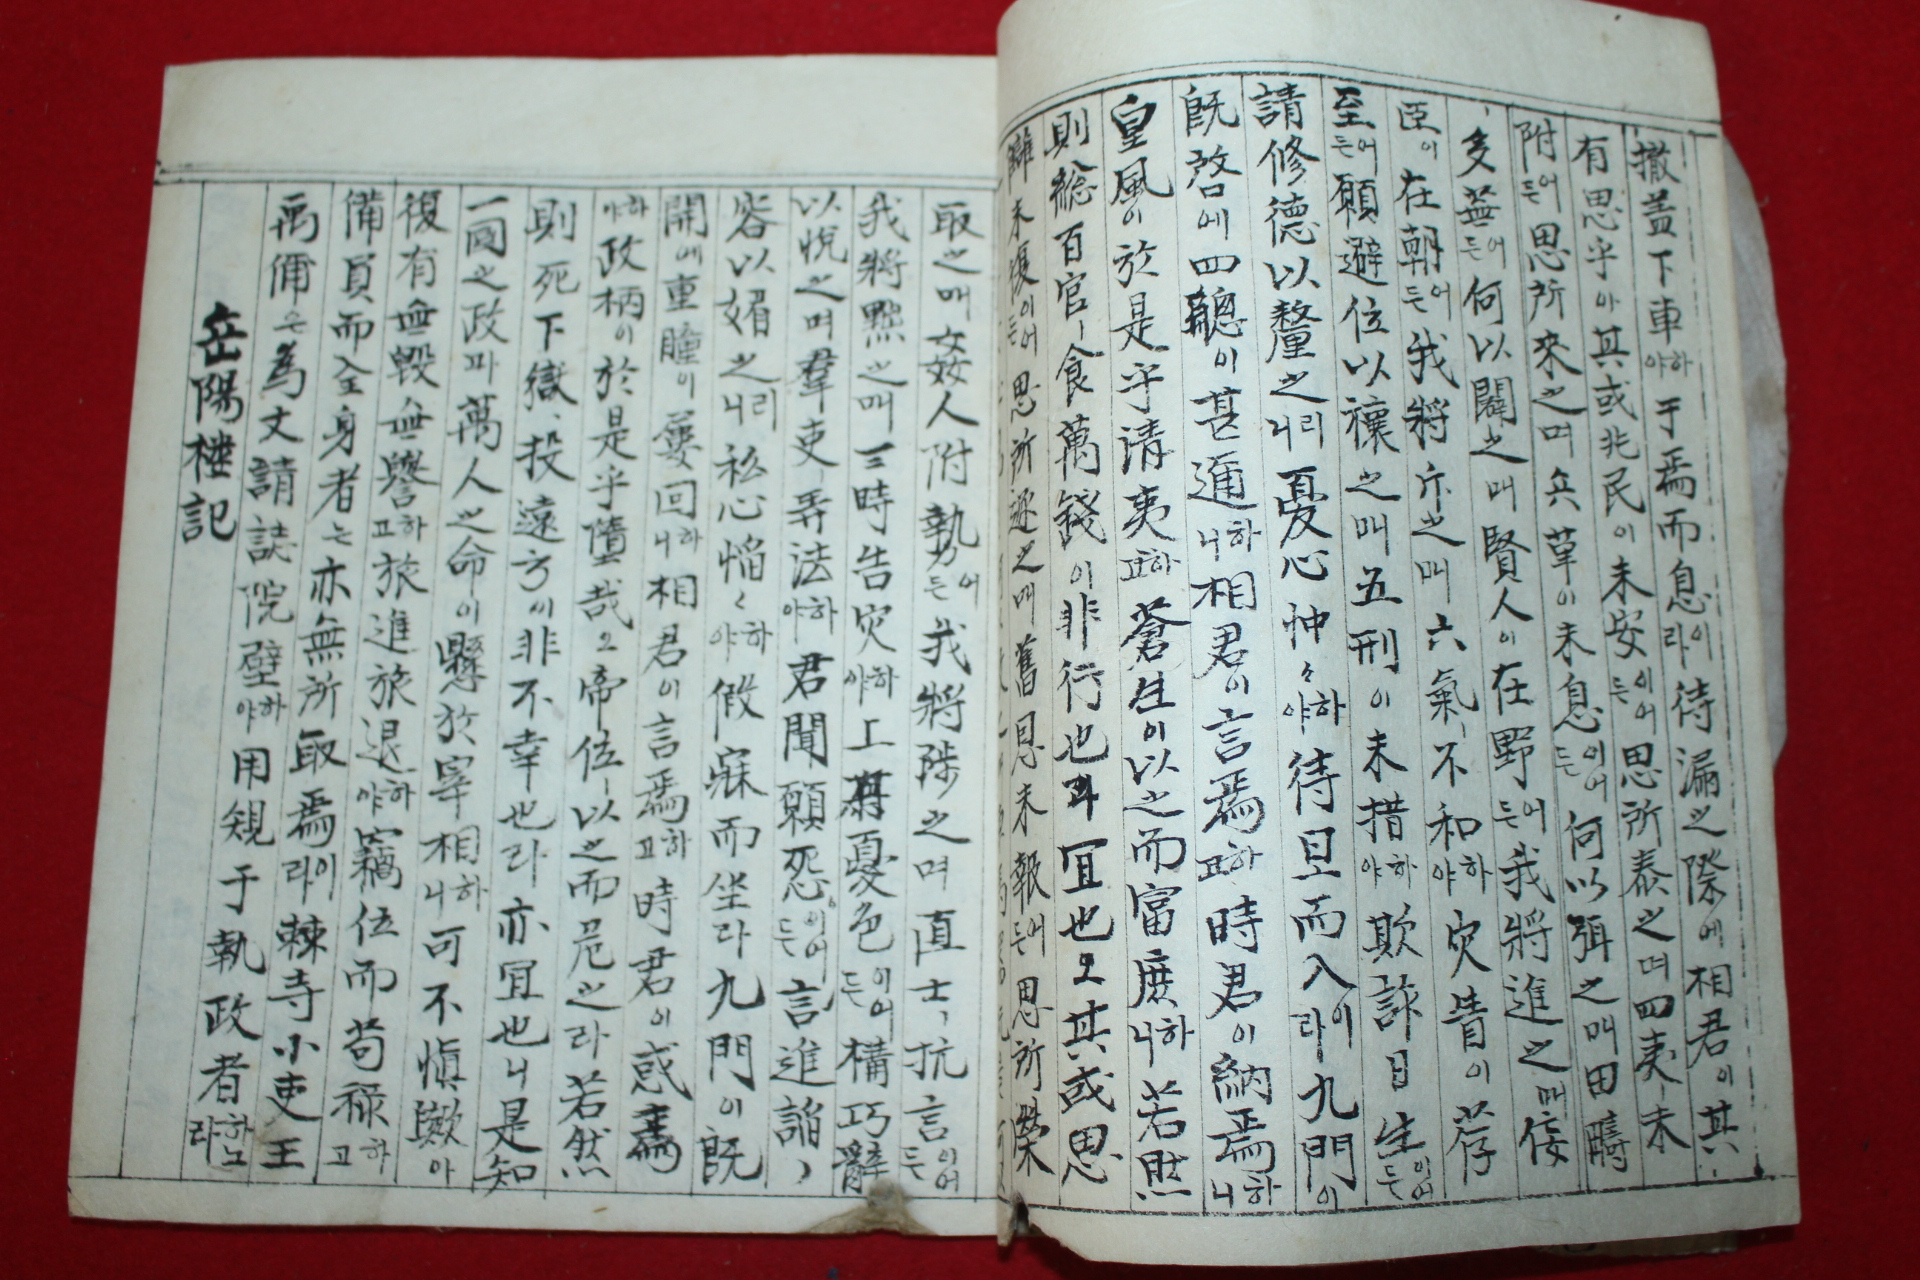 撤盖下車하야于焉而息이라待漏之際에相君이其
有思乎아其或兆民이未安이어든思所泰之며四夷ㅣ未
附어든思所來之며兵革이未息이어든何以弭之며田疇
多蕪어든何以闢之며賢人이在野어든我將進之며佞
臣이在朝어든我將斥之며六氣ㅣ不和하야灾眚이荐
至어든願避位以禳之며五刑이未措하야欺詐日生이어든
請修德以釐之리니憂心忡〻하야待旦而入이라九門이
既啓에四聰이甚邇하니相君이言焉하고時君이納焉하니
皇風이於是乎清夷하고蒼生이以之而富庶하니若然
則総百官ㅣ食萬錢이非行也라宜也오其或思
讎未復이어든思所逐之며舊恩未報어든思所榮
取之며姦人附勢어든我將陟之며直士ㅣ抗言이어든
我將黜之며三時告灾하야上有憂色이어든構巧辭
以悅之며羣吏ㅣ弄法하야君聞願怨이어든言進諂
容以媚之리니私心慆〻하야假寐而坐라九門이既
開에重瞳이屢回하니相君이言焉하고時君이惑焉
하야政柄이於是乎隳哉오帝位ㅣ以之而危之라若然
則死下獄投遠方이非不幸也라亦宜也니是知
一國之政과萬人之命이懸於宰相하니可不慎歟아
復有無毀無譽하고旅進旅退하야竊位而苟祿하고
備員而全身者는亦無所取焉이라棘寺小吏王
禹偁은為文請誌院壁하야用規于執政者하노라
岳陽樓記